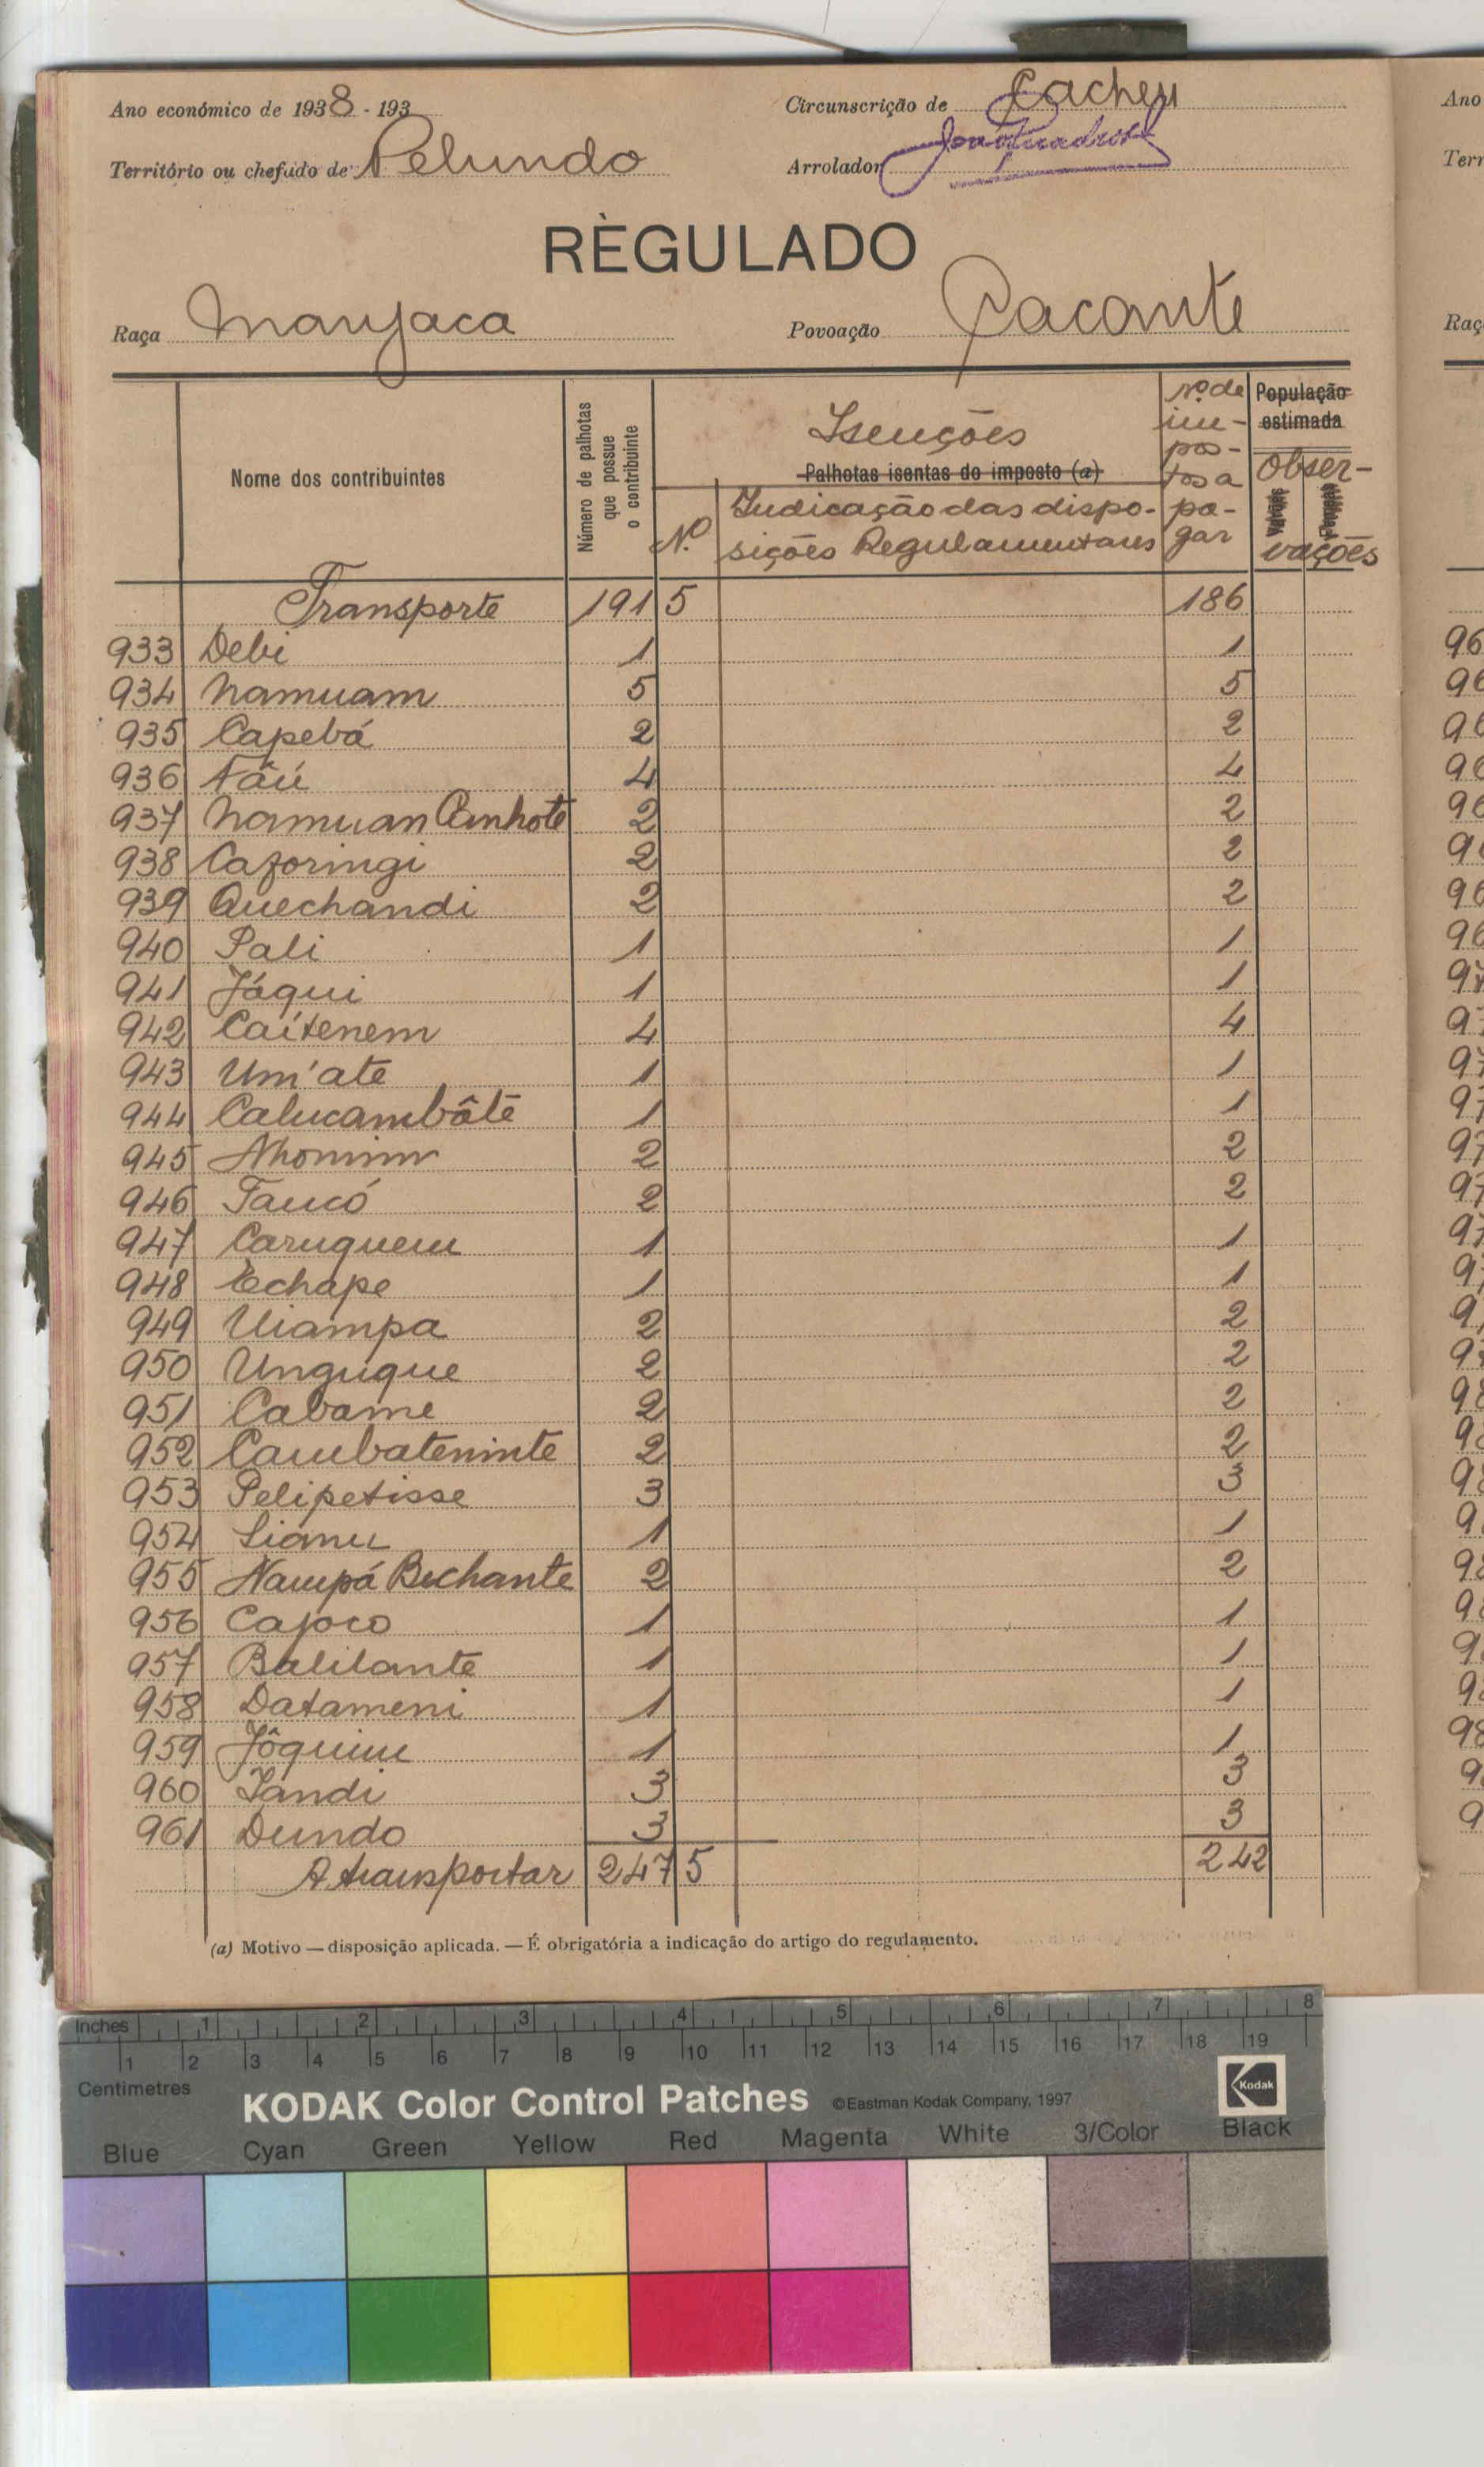 Ano económico de 1938 - 193
Circunscrição de Cacheu
Território ou chefado de Pelundo
Arrolador
RÈGULADO
Raça Manjaca
Povoação Pacante
Nome dos contribuintes
Número de palhotas que possue o contribuinte
Isenções
Palhotas isentas do imposto (a)
Nº
Indicação das dispo-
sições Regulamentares
Nº de
im-
pos-
tos a
pa-
gar
População
estimada
Obser-
vações
Transporte 191 5 186
933 Debi 1 1
934 Namuam 5 5
935 Capebá 2 2
936 Nâú 4 4
937 Namuan Canhote 2 2
938 Caforingi 2 2
939 Quechandi 2 2
940 Pali 1 1
941 Jáqui 1 1
942 Caítenem 4 4
943 Um'ate 1 1
944 Calucambôte 1 1
945 Nhonim 2 2
946 Faucó 2 2
947 Caruquem 1 1
948 Echape 1 1
949 Uiampa 2 2
950 Unguque 2 2
951 Cabame 2 2
952 Cambateninte 2 2
953 Pelipetisse 3 3
954 Lianu 1 1
955 Nampá Bechante 2 2
956 Cajoco 1 1
957 Balilante 1 1
958 Datameni 1 1
959 Jôquim 1 1
960 Jandi 3 3
961 Dundo 3 3
A transportar 247 5 242
(a) Motivo — disposição aplicada. — É obrigatória a indicação do artigo do regulamento.
Inches 1 2 3 4 5 6 7 8
1 2 3 4 5 6 7 8 9 10 11 12 13 14 15 16 17 18 19
Centimetres
KODAK Color Control Patches ©Eastman Kodak Company, 1997 Kodak
Blue Cyan Green Yellow Red Magenta White 3/Color Black